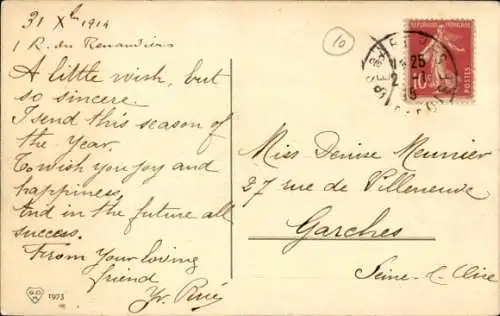 31 Xbre 1914
1 R. du Renaudiers
A little wish, but
so sincere.
I send this season of
the Year.
To wish you joy and
happiness,
And in the future all
success.
From Your loving
friend
Yv.
1973
10
RÉPUBLIQUE FRANÇAISE
10c
POSTES
Miss Denise Meunier
27 rue de Villeneuve
Garches
Seine-&-Oise